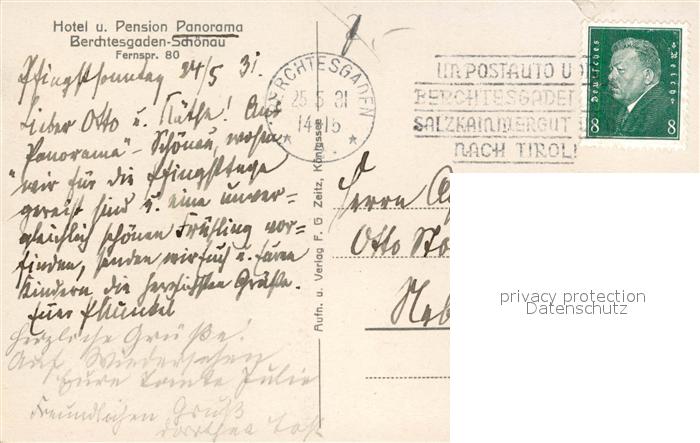 Hotel u. Pension Panorama
Berchtesgaden-Schönau
Fernspr. 80
Pfingstsonntag 24/5 31.
Lieber Otto u. Käthe! Aus
"Panorama" - Schönau, wohin
wir für die Pfingsttage
gereist sind u. eine unver-
gleichlich schönen Frühling vor-
finden, senden wir Euch u. Euren
Kindern die herzlichsten Grüße.
Euer
Herzliche Grüße!
Auf Wiedersehen
Eure Tante Julie
Freundlichen Gruß
Dorothea
Aufn. u. Verlag F. G. Zeitz, Königssee
BERCHTESGADEN
25.5.31
14-15
IM POSTAUTO VON
BERCHTESGADEN
SALZKAMMERGUT
NACH TIROL!
Deutsches Reich
8 8
Herrn
Otto
privacy protection
Datenschutz